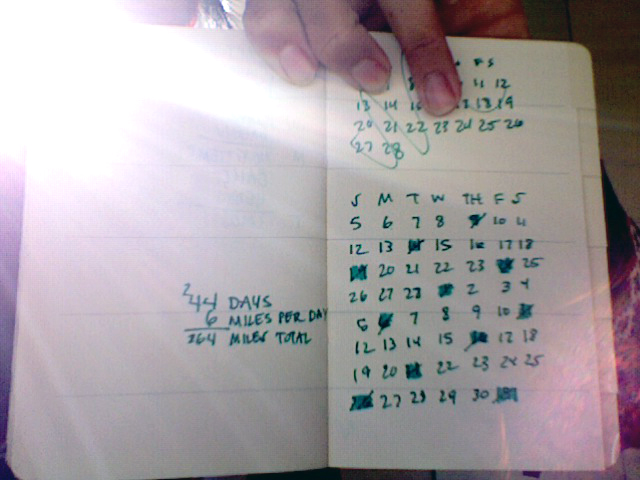 2
44 DAYS
6 MILES PER DAY
264 MILES TOTAL
F S
11 12
13 14 18 19
20 21 22 23 24 25 26
27 28
S M T W TH F S
5 6 7 8 10 11
12 13 15 16 17 18
20 21 22 23 25
26 27 28 2 3 4
5 7 8 9 10
12 13 14 15 17 18
19 20 22 23 24 25
27 28 29 30